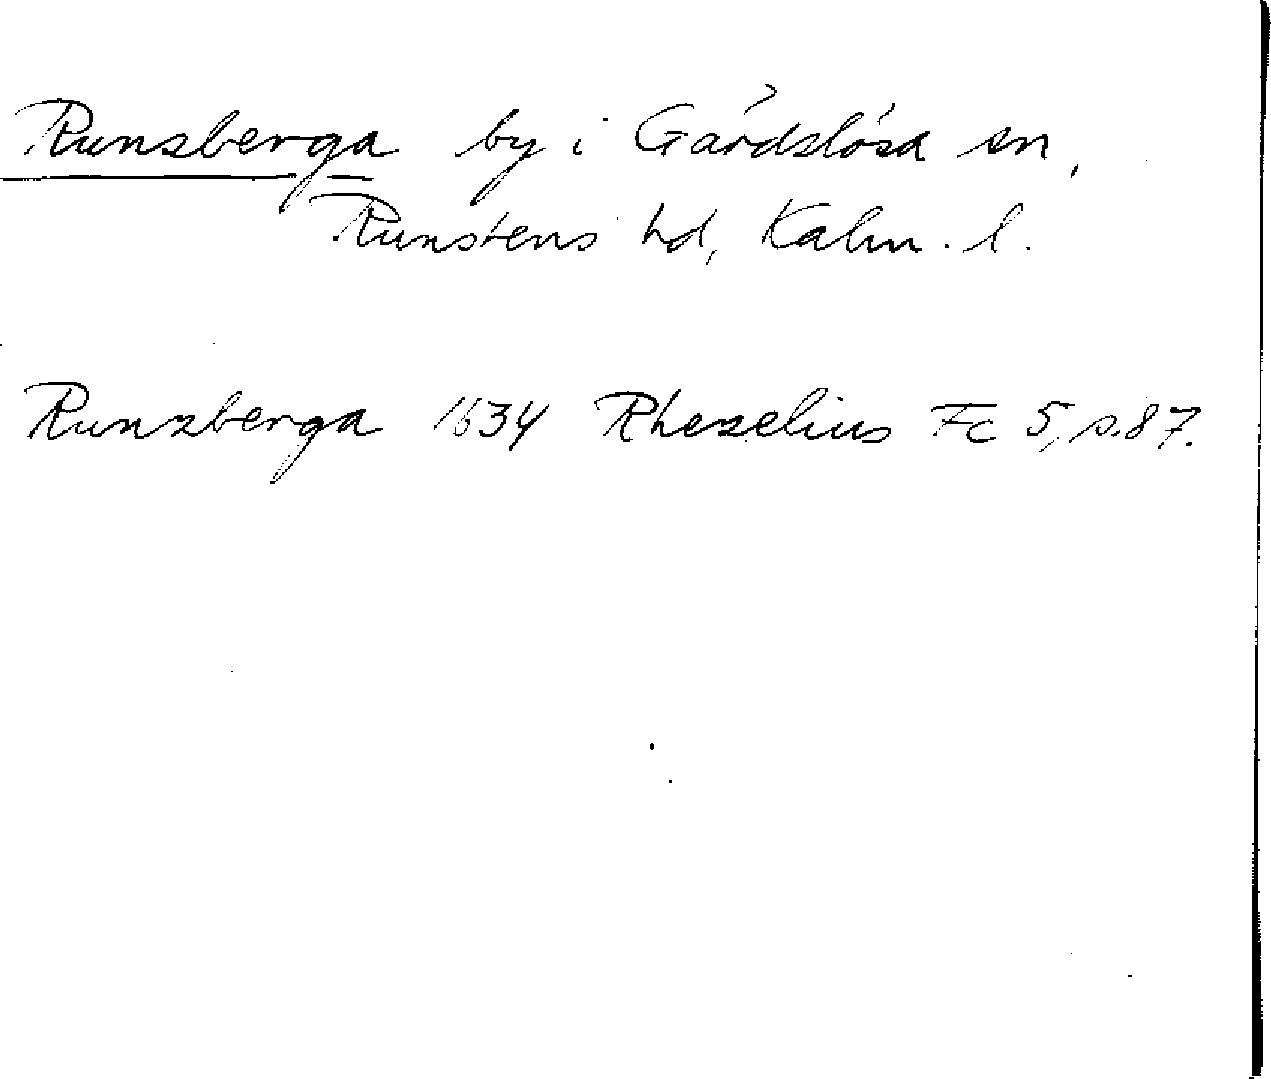 Runsberga by i Gärdslösa sn,
Runstens hd, Kalm. l.
Runsberga 1634 Rhezelius Fc 5, s. 87.